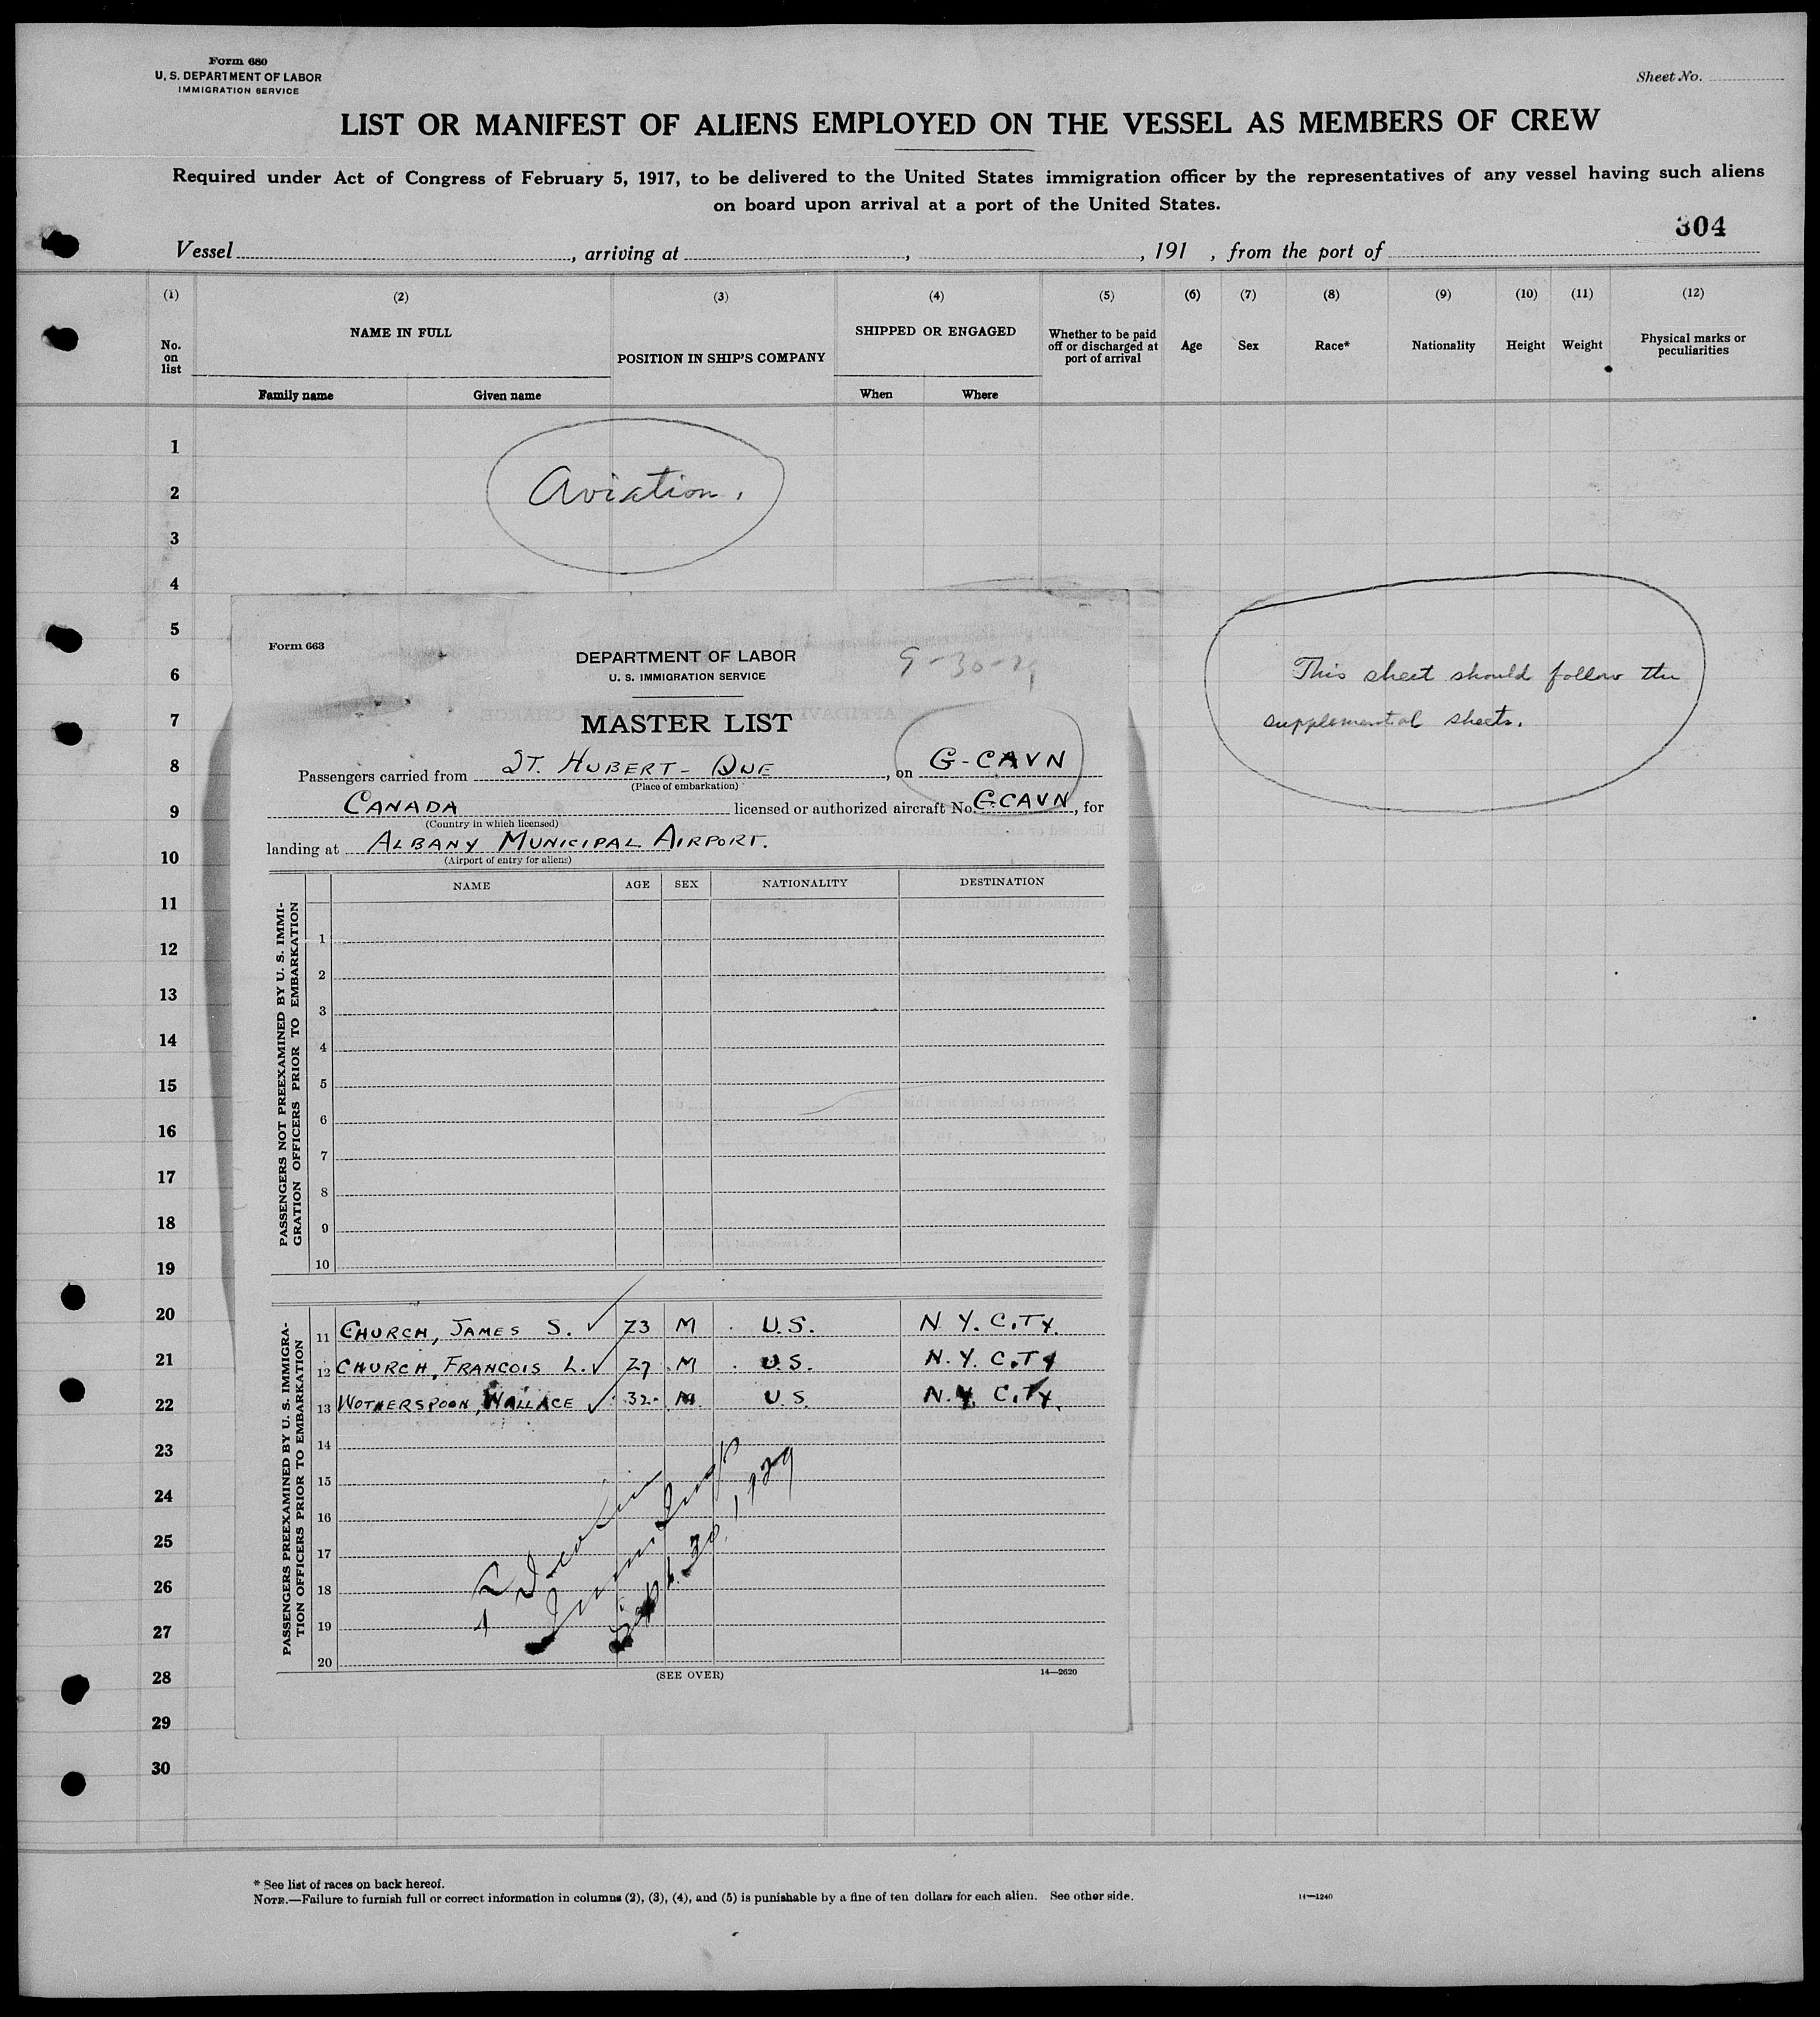 Form 680
U. S. DEPARTMENT OF LABOR
IMMIGRATION SERVICE
Sheet No.
LIST OR MANIFEST OF ALIENS EMPLOYED ON THE VESSEL AS MEMBERS OF CREW
Required under Act of Congress of February 5, 1917, to be delivered to the United States immigration officer by the representatives of any vessel having such aliens
on board upon arrival at a port of the United States.
304
Vessel , arriving at , , 191 , from the port of
(1) (2) (3) (4) (5) (6) (7) (8) (9) (10) (11) (12)
No. on list
NAME IN FULL
Family name Given name
POSITION IN SHIP'S COMPANY
SHIPPED OR ENGAGED
When Where
Whether to be paid off or discharged at port of arrival
Age Sex Race* Nationality Height Weight
Physical marks or peculiarities
1
2
3
4
5
6
7
8
9
10
11
12
13
14
15
16
17
18
19
20
21
22
23
24
25
26
27
28
29
30
Aviation.
This sheet should follow the
supplemental sheets.
Form 663
DEPARTMENT OF LABOR
U. S. IMMIGRATION SERVICE
9-30-29
MASTER LIST
Passengers carried from ST. HUBERT - QUE , on G-CAVN
(Place of embarkation)
CANADA licensed or authorized aircraft No. G-CAVN, for
(Country in which licensed)
landing at ALBANY MUNICIPAL AIRPORT.
(Airport of entry for aliens)
NAME AGE SEX NATIONALITY DESTINATION
PASSENGERS NOT PREEXAMINED BY U. S. IMMI-
GRATION OFFICERS PRIOR TO EMBARKATION
1
2
3
4
5
6
7
8
9
10
PASSENGERS PREEXAMINED BY U. S. IMMIGRA-
TION OFFICERS PRIOR TO EMBARKATION
11 CHURCH, JAMES S. ✓ 23 M U.S. N.Y. CITY.
12 CHURCH, FRANCOIS L. ✓ 27 M U.S. N.Y. CITY
13 WOTHERSPOON, WALLACE ✓ 32 M U.S. N.Y. CITY.
14
15
16
17
18
19
20
Sept. 30, 1929
(SEE OVER)
14—2620
* See list of races on back hereof.
NOTE.—Failure to furnish full or correct information in columns (2), (3), (4), and (5) is punishable by a fine of ten dollars for each alien. See other side.
14—1240